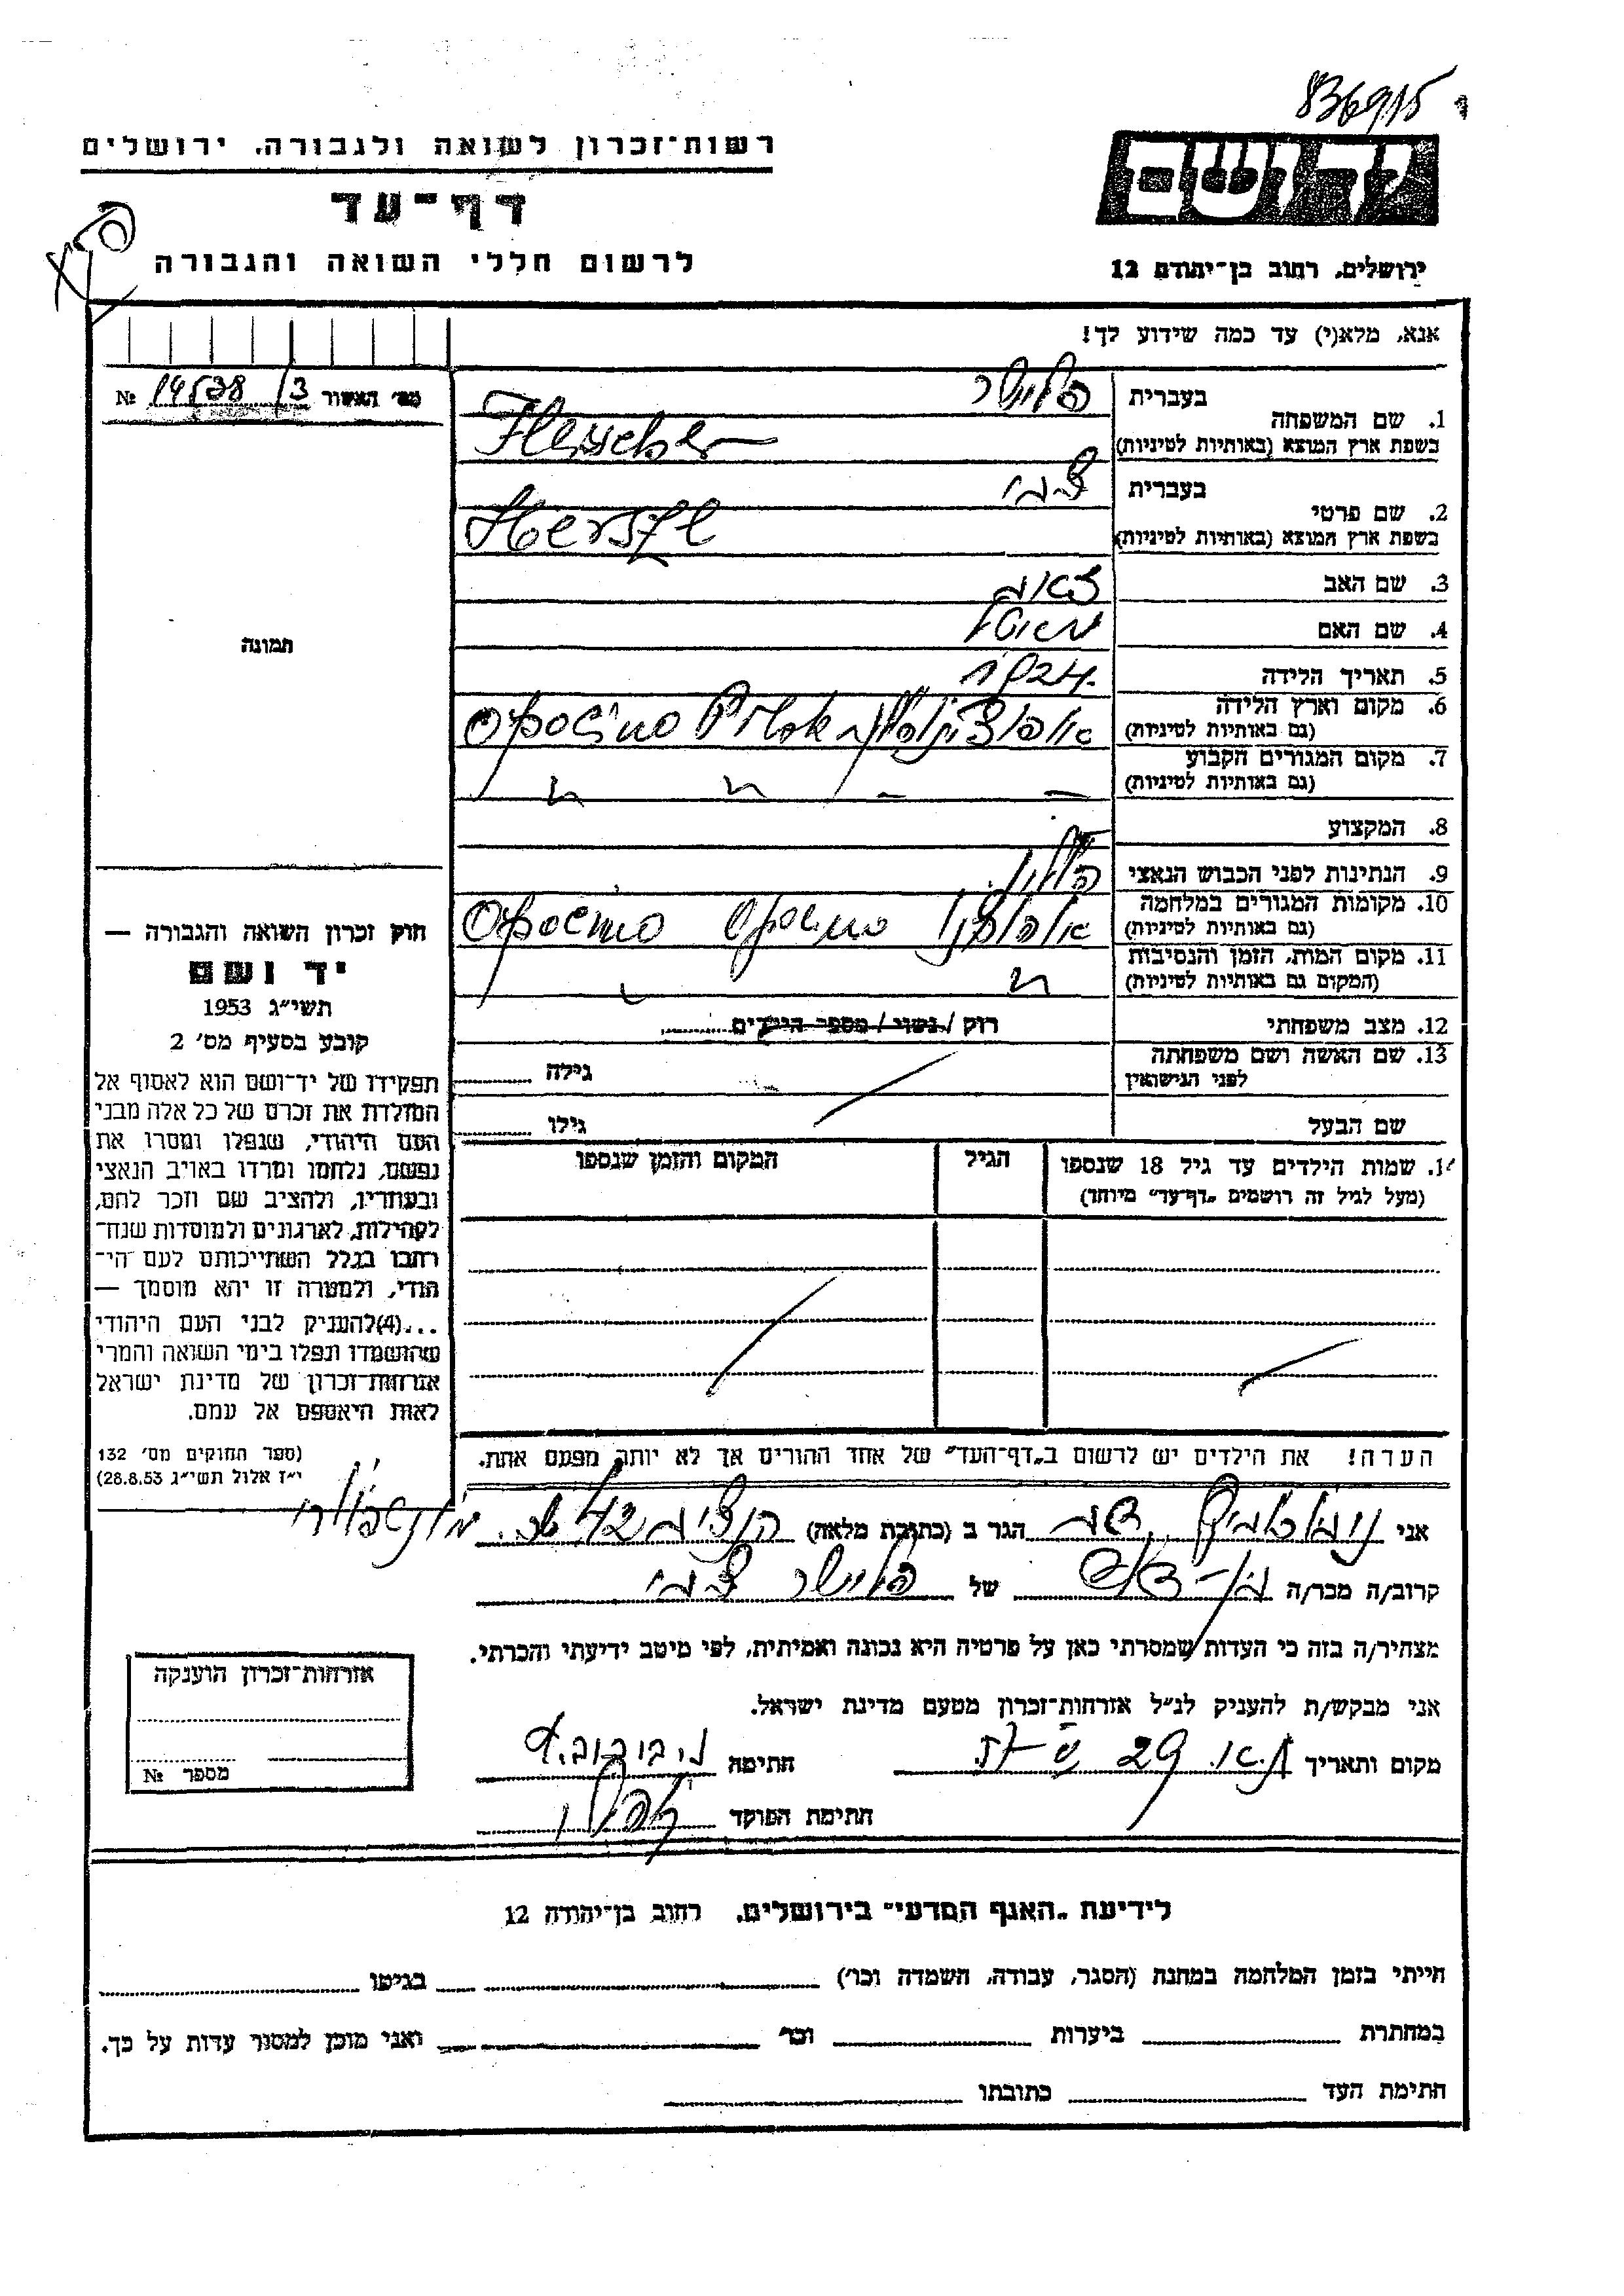 836915
רשות־זכרון לשואה ולגבורה, ירושלים
דף־עד
לרשום חללי השואה והגבורה
ירושלים, רחוב בן־יהודה 12
אנא, מלא(י) עד כמה שידוע לך!
מס׳ האשור 3 / № 14538
תמונה
בעברית פליישר
1. שם המשפחה
בשפת ארץ המוצא (באותיות לטיניות) Fleischer
בעברית צבי
2. שם פרטי
בשפת ארץ המוצא (באותיות לטיניות) Herszl
3. שם האב זאב
4. שם האם
5. תאריך הלידה 1924
6. מקום וארץ הלידה
(גם באותיות לטיניות) Opoczno
7. מקום המגורים הקבוע
(גם באותיות לטיניות) — - / " "
8. המקצוע
9. הנתינות לפני הכבוש הנאצי פולין
10. מקומות המגורים במלחמה
(גם באותיות לטיניות) Opoczno Opoczno
11. מקום המות, הזמן והנסיבות
(המקום גם באותיות לטיניות) "
12. מצב משפחתי רוק / נשוי / מספר הילדים
13. שם האשה ושם משפחתה
לפני הנישואין גילה
שם הבעל גילו
14. שמות הילדים עד גיל 18 שנספו
(מעל לגיל זה רושמים „דף־עד" מיוחד)
הגיל
המקום והזמן שנספו
הערה! את הילדים יש לרשום ב„דף־העד" של אחד ההורים אך לא יותר מפעם אחת.
חוק זכרון השואה והגבורה —
יד ושם
תשי״ג 1953
קובע בסעיף מס׳ 2
תפקידו של יד־ושם הוא לאסוף אל
המולדת את זכרם של כל אלה מבני
העם היהודי, שנפלו ומסרו את
נפשם, נלחמו ומרדו באויב הנאצי
ובעוזריו, ולהציב שם וזכר להם,
לקהילות, לארגונים ולמוסדות שנח־
רבו בגלל השתייכותם לעם הי־
הודי, ולמטרה זו יהא מוסמך —
...(4)להעניק לבני העם היהודי
שהושמדו ונפלו בימי השואה והמרי
אזרחות־זכרון של מדינת ישראל
לאות היאספם אל עמם.
(ספר החוקים מס׳ 132
י״ז אלול תשי״ג 28.8.53)
אני הגר ב (כתובת מלאה) 42
קרוב/ה מכר/ה בן-דוד של פליישר צבי
מצהיר/ה בזה כי העדות שמסרתי כאן על פרטיה היא נכונה ואמיתית, לפי מיטב ידיעתי והכרתי.
אני מבקש/ת להעניק לנ״ל אזרחות־זכרון מטעם מדינת ישראל.
מקום ותאריך 29 חתימה
חתימת הפוקד
אזרחות־זכרון הוענקה
מספר №
לידיעת „האגף המדעי" בירושלים, רחוב בן־יהודה 12
הייתי בזמן המלחמה במחנה (הסגר, עבודה, השמדה וכו׳) בגיטו
במחתרת ביערות וכו׳ ואני מוכן למסור עדות על כך.
חתימת העד כתובתו